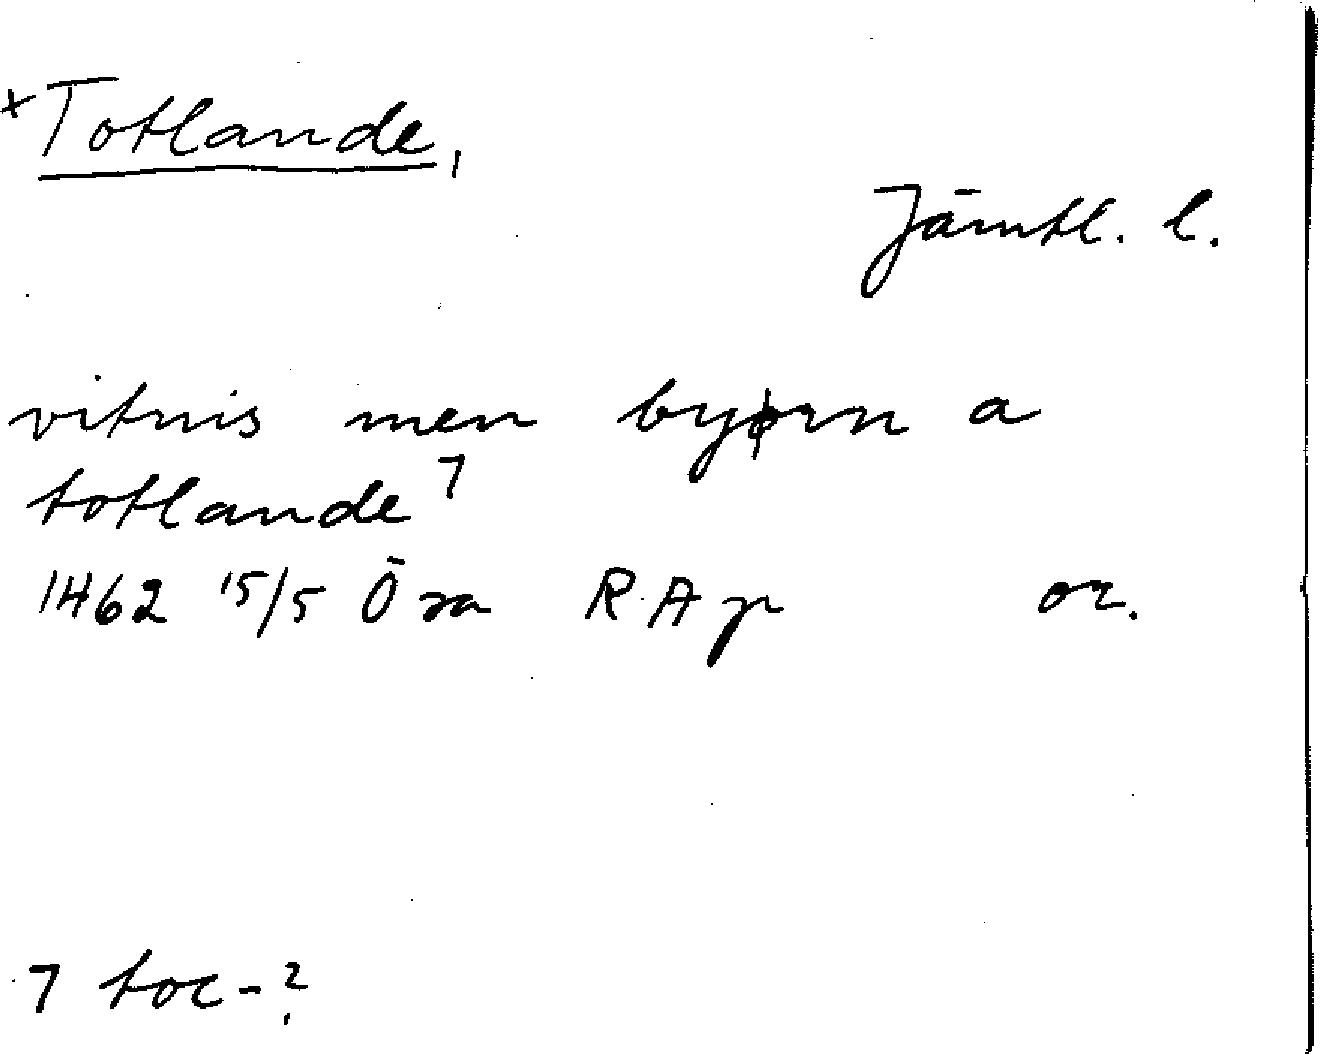 +Totlande,
Jämtl. l.
vitnis men byørn a
totlande ⁊
1462 15/5 Öra RAp or.
⁊ toc-?